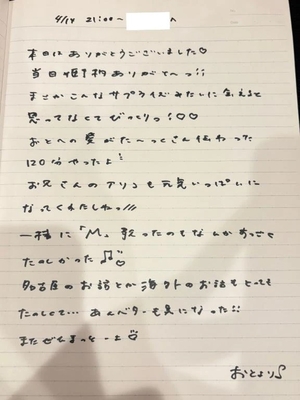 9/14 21:00〜 へ
本日はありがとうございました♡
当日姫予約ありがとーっ!!
まさかこんなサプライズみたいに会えると
思ってなくてびっくりっ!♡♡
おとへの愛がたーっくさん伝わった
120分やったよ!
お兄さんのアソコも元気いっぱいに
なってくれたしねっ///
一緒に「M」歌ったのもなんかすっごく
たのしかった♫♡
名古屋のお話とか海外のお話もとっても
たのしくて… あんベターも気になった!!
またぜったいっ
おとより♪